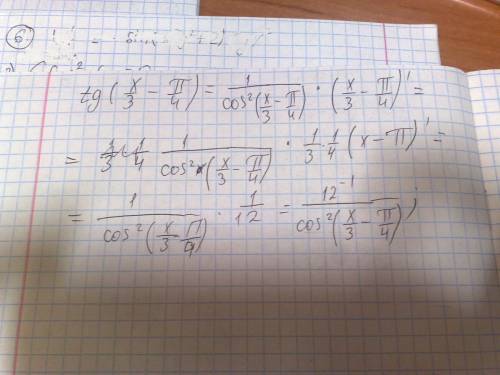 6)
tg(x/3 − π/4) = 1/cos²(x/3 − π/4) · (x/3 − π/4)' =
= 1/cos²(x/3 − π/4) · 1/3 · 1/4 (x − π)' =
= 1/cos²(x/3 − π/4) · 1/12 = 12⁻¹/cos²(x/3 − π/4) ;